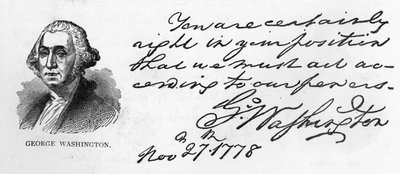 You are certainly
right in your position
that we must act ac-
cording to our powers-
G. Washington
Nov 27. 1778
GEORGE WASHINGTON.